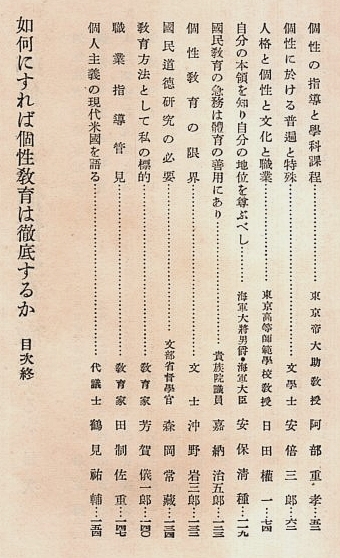 個性の指導と學科課程……………東京帝大助敎授 阿部重孝…五二
個性に於ける普遍と特殊……………文學士 安倍三郎…六二
人格と個性と文化と職業……………東京高等師範學校敎授 日田權一…七四
自分の本領を知り自分の地位を尊ぶべし……………海軍大將男爵・海軍大臣 安保淸種…一一九
國民敎育の急務は體育の善用にあり……………貴族院議員 嘉納治五郎…一二三
個性敎育の限界……………文士 沖野岩三郎…一三三
國民道德硏究の必要……………文部省督學官 森岡常藏…一三四
敎育方法として私の標的……………敎育家 芳賀儀一郎…一四〇
職業指導管見……………敎育家 田制佐重…一四七
個人主義の現代米國を語る……………代議士 鶴見祐輔…一五四
如何にすれば個性敎育は徹底するか 目次終